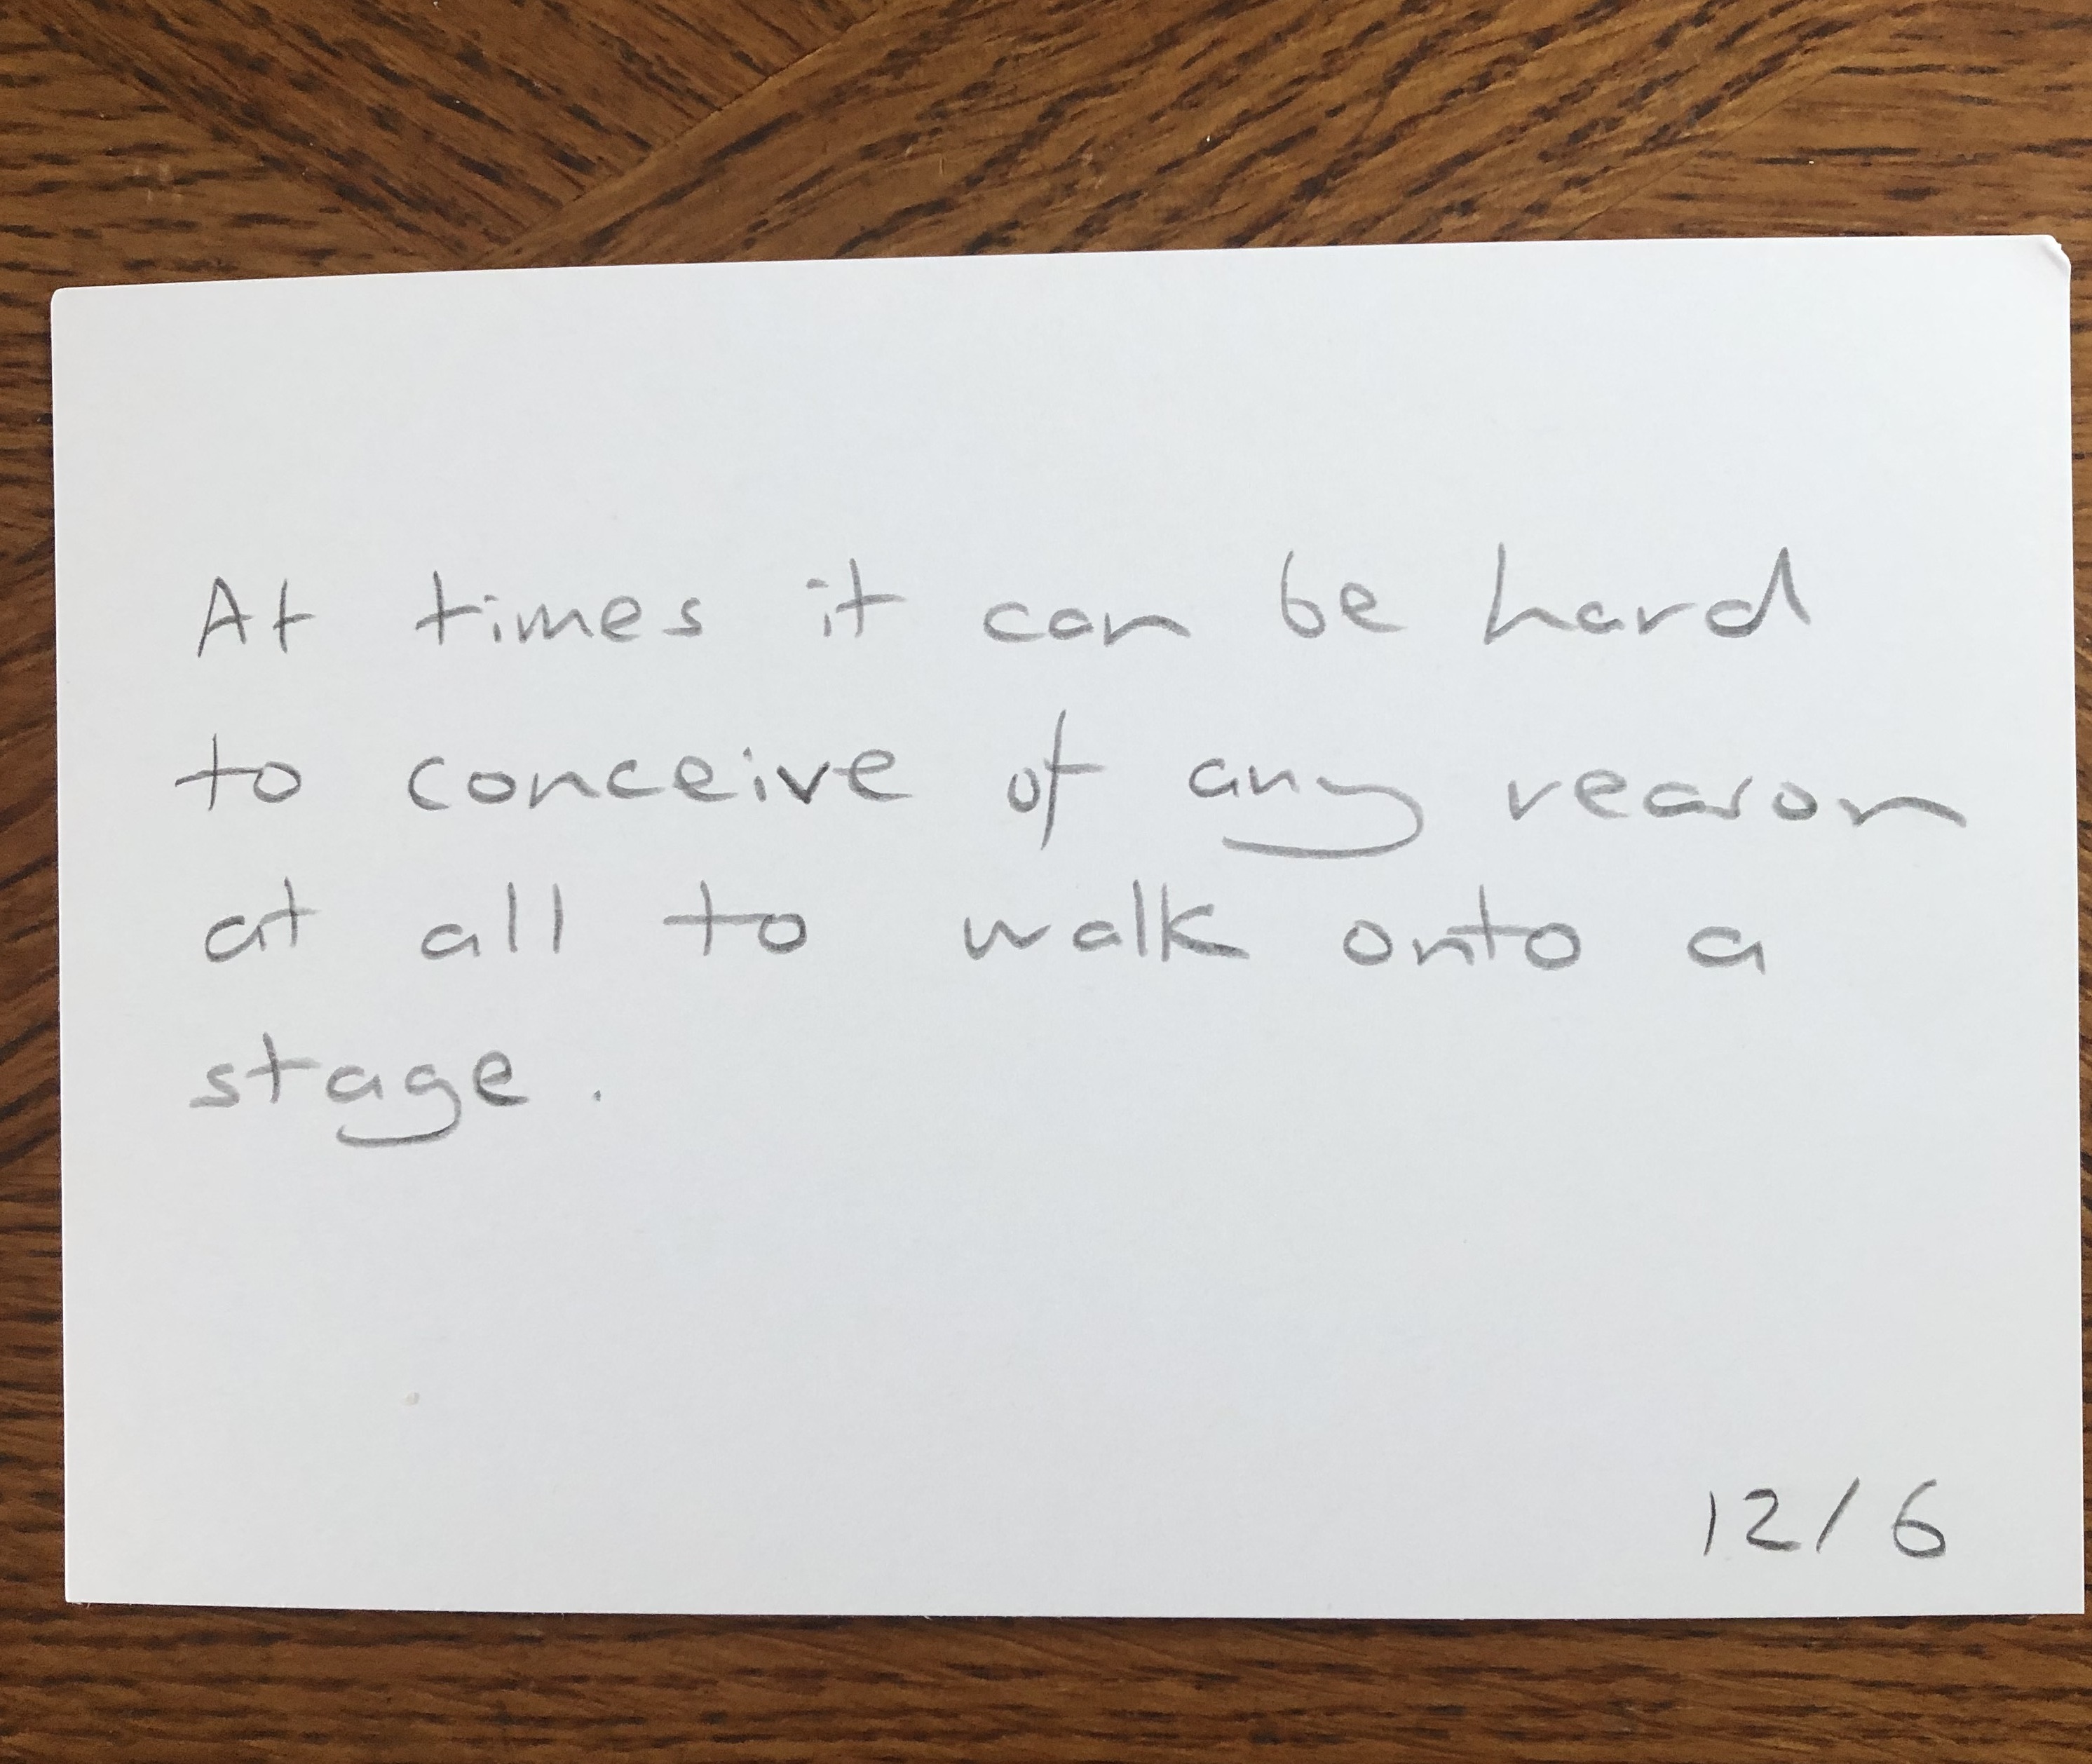 At times it can be hard
to conceive of any reason
at all to walk onto a
stage.
12/6